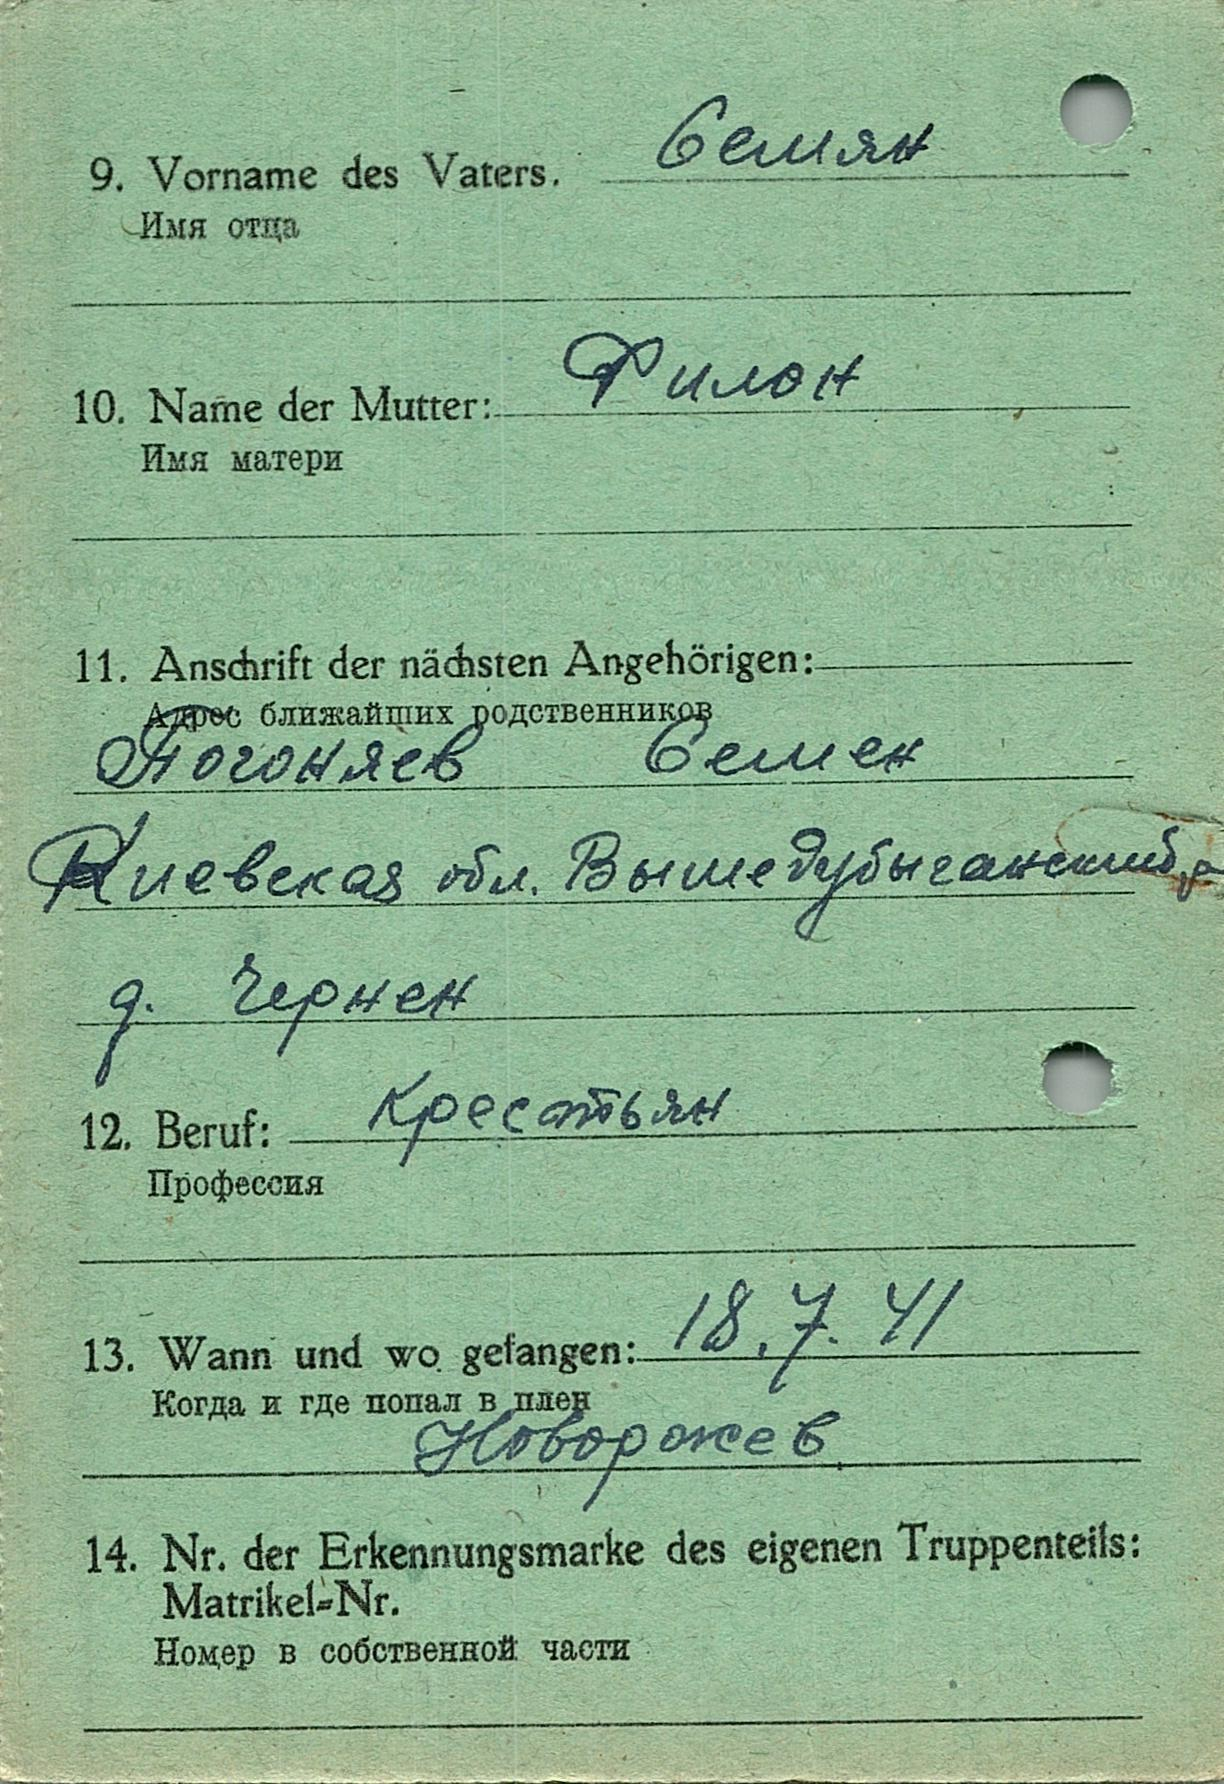 9. Vorname des Vaters. Семян
Имя отца
10. Name der Mutter: Филон
Имя матери
11. Anschrift der nächsten Angehörigen:
Адрес ближайших родственников
Погоняев Семен
Киевская обл. Вышедубычанский р
д. Чернен
12. Beruf: Крестьян
Профессия
13. Wann und wo gefangen: 18.7.41
Когда и где попал в плен
Новоржев
14. Nr. der Erkennungsmarke des eigenen Truppenteils:
Matrikel-Nr.
Номер в собственной части